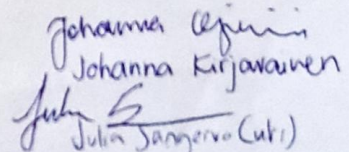 Johanna
Johanna Kirjavainen
Julia
Julia Jangervo (utr)